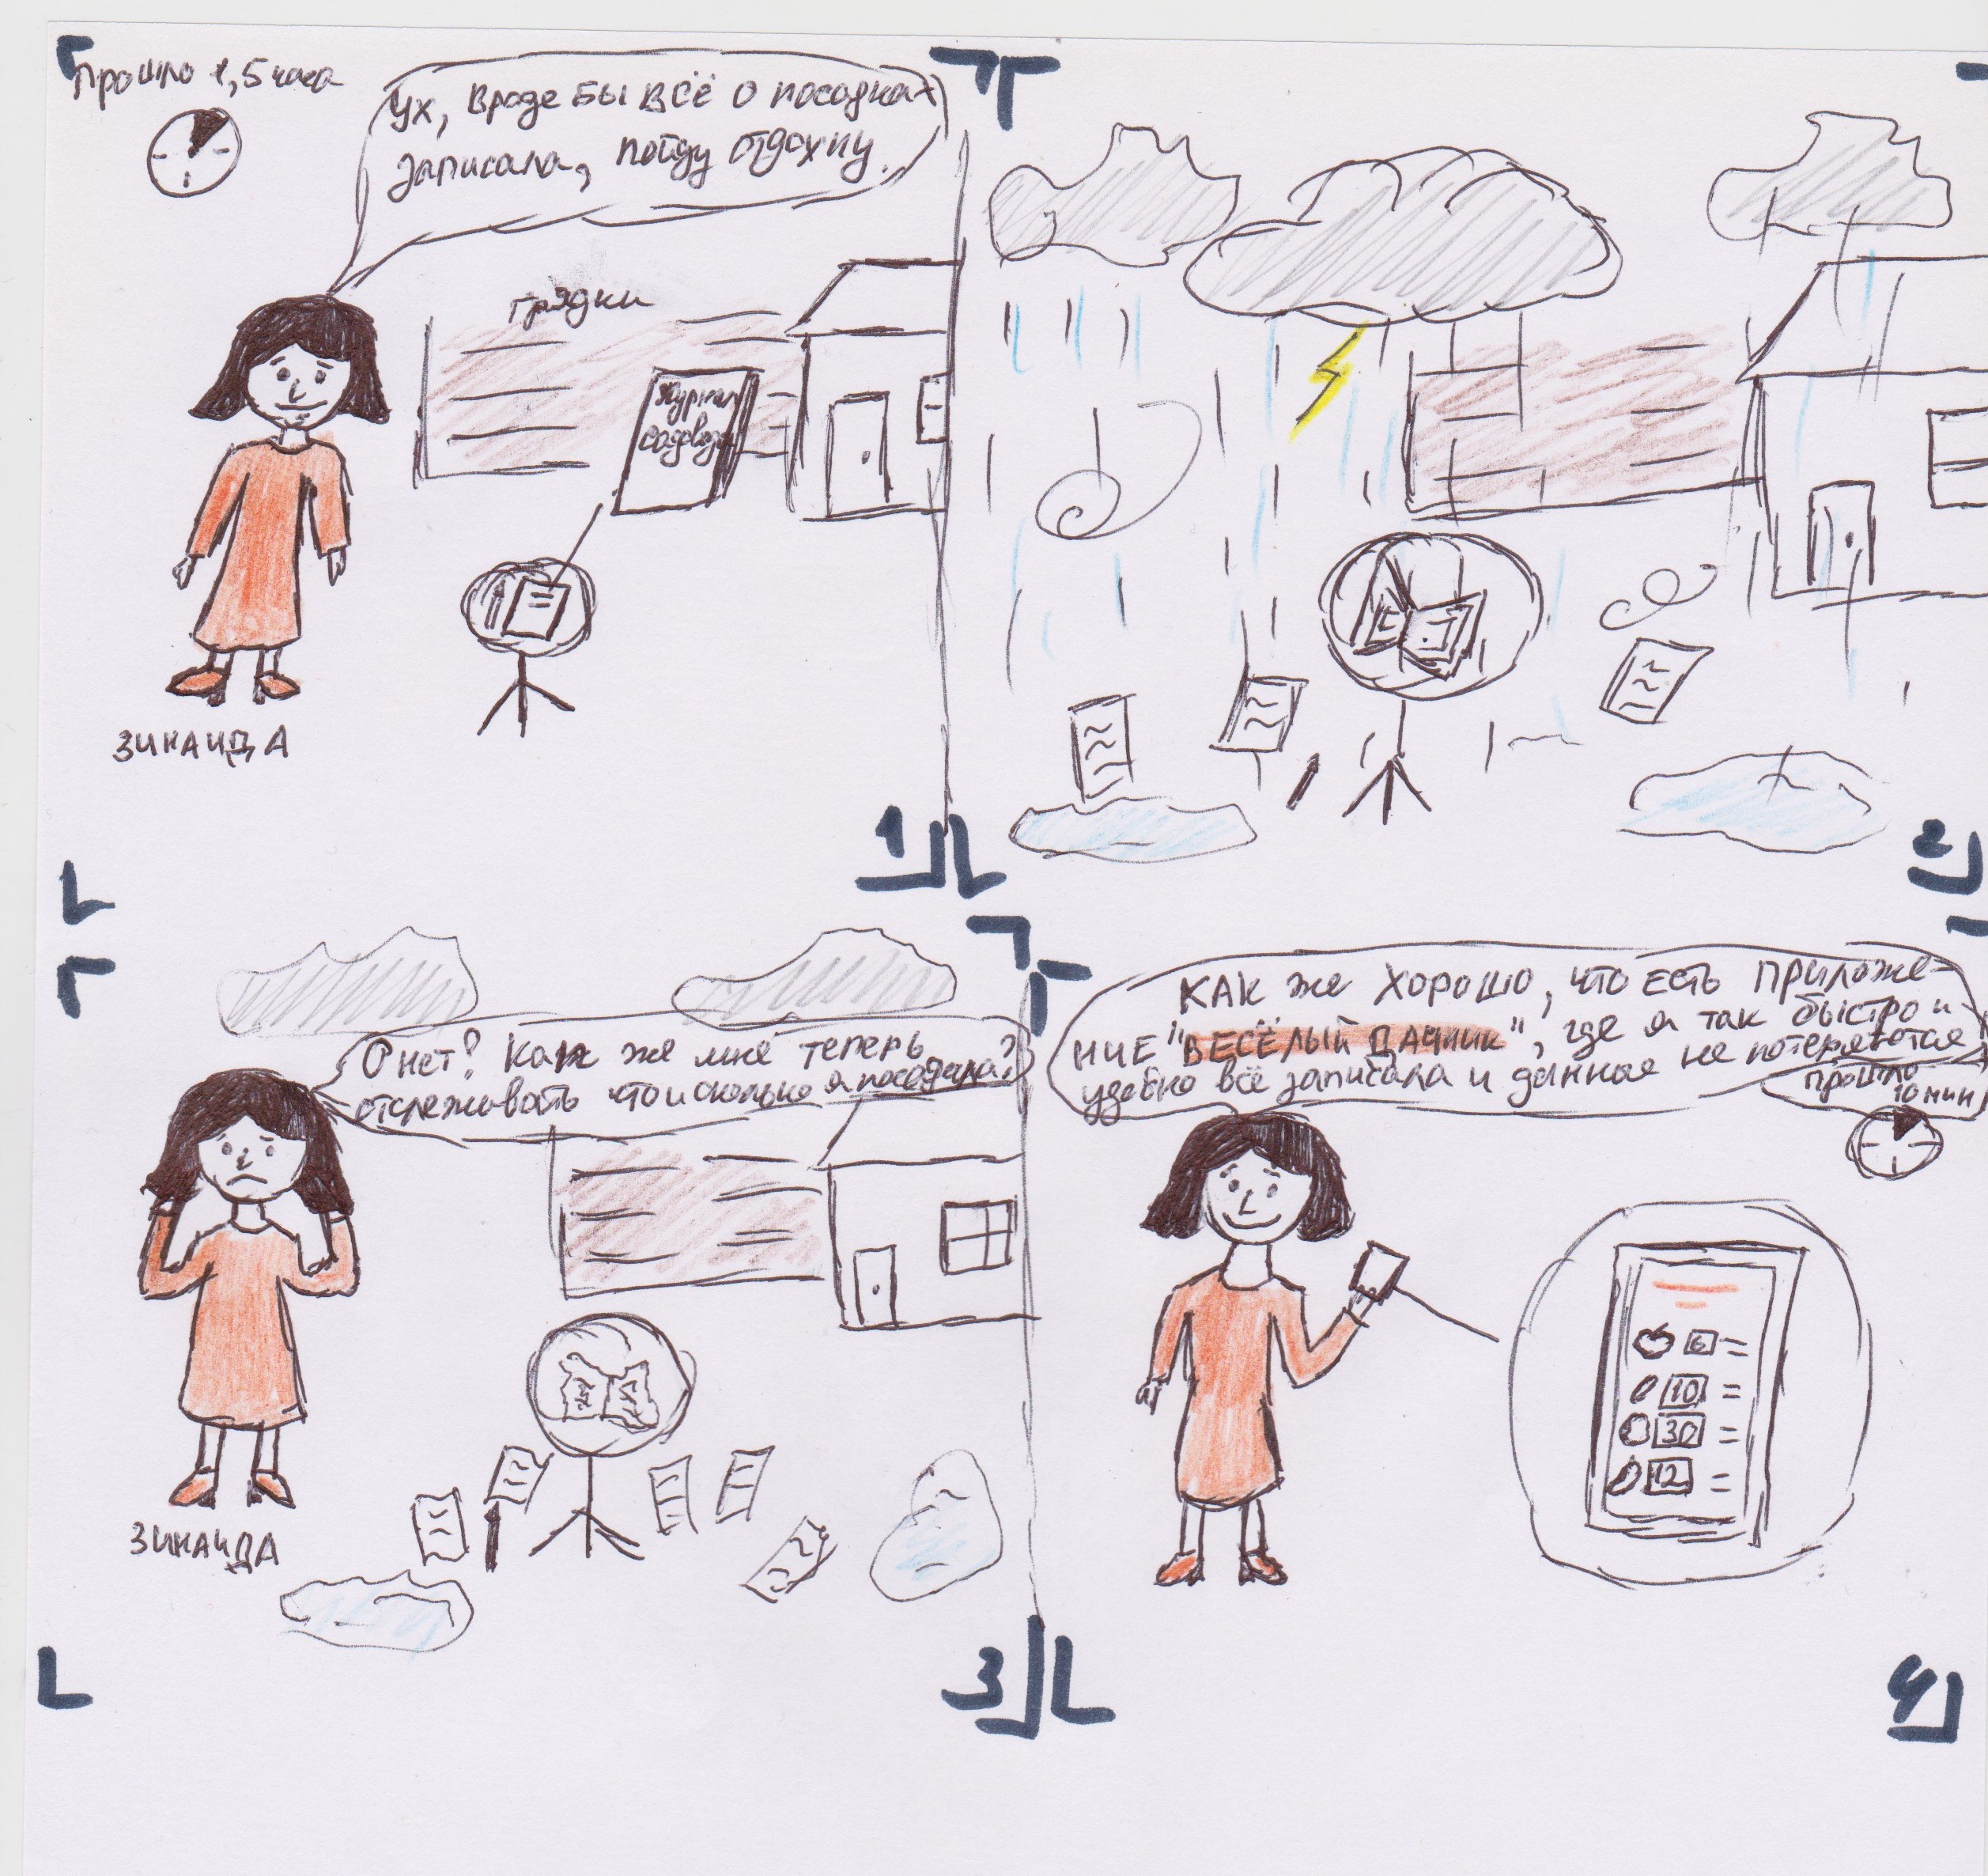 Прошло 1,5 часа
Ух, вроде бы всё о посадках
записала, пойду отдохну.
грядки
Журнал
садовода
ЗИНАИДА
1
2
О нет! Как же мне теперь
отслеживать что и сколько я посадила?
ЗИНАИДА
3
КАК же ХОРОШО, что есть Приложе-
ние "ВЕСЁЛЫЙ ДАЧНИК", где я так быстро и
удобно всё записала и данные не потеряются
прошло
10 мин
6 =
10 =
30 =
12 =
4